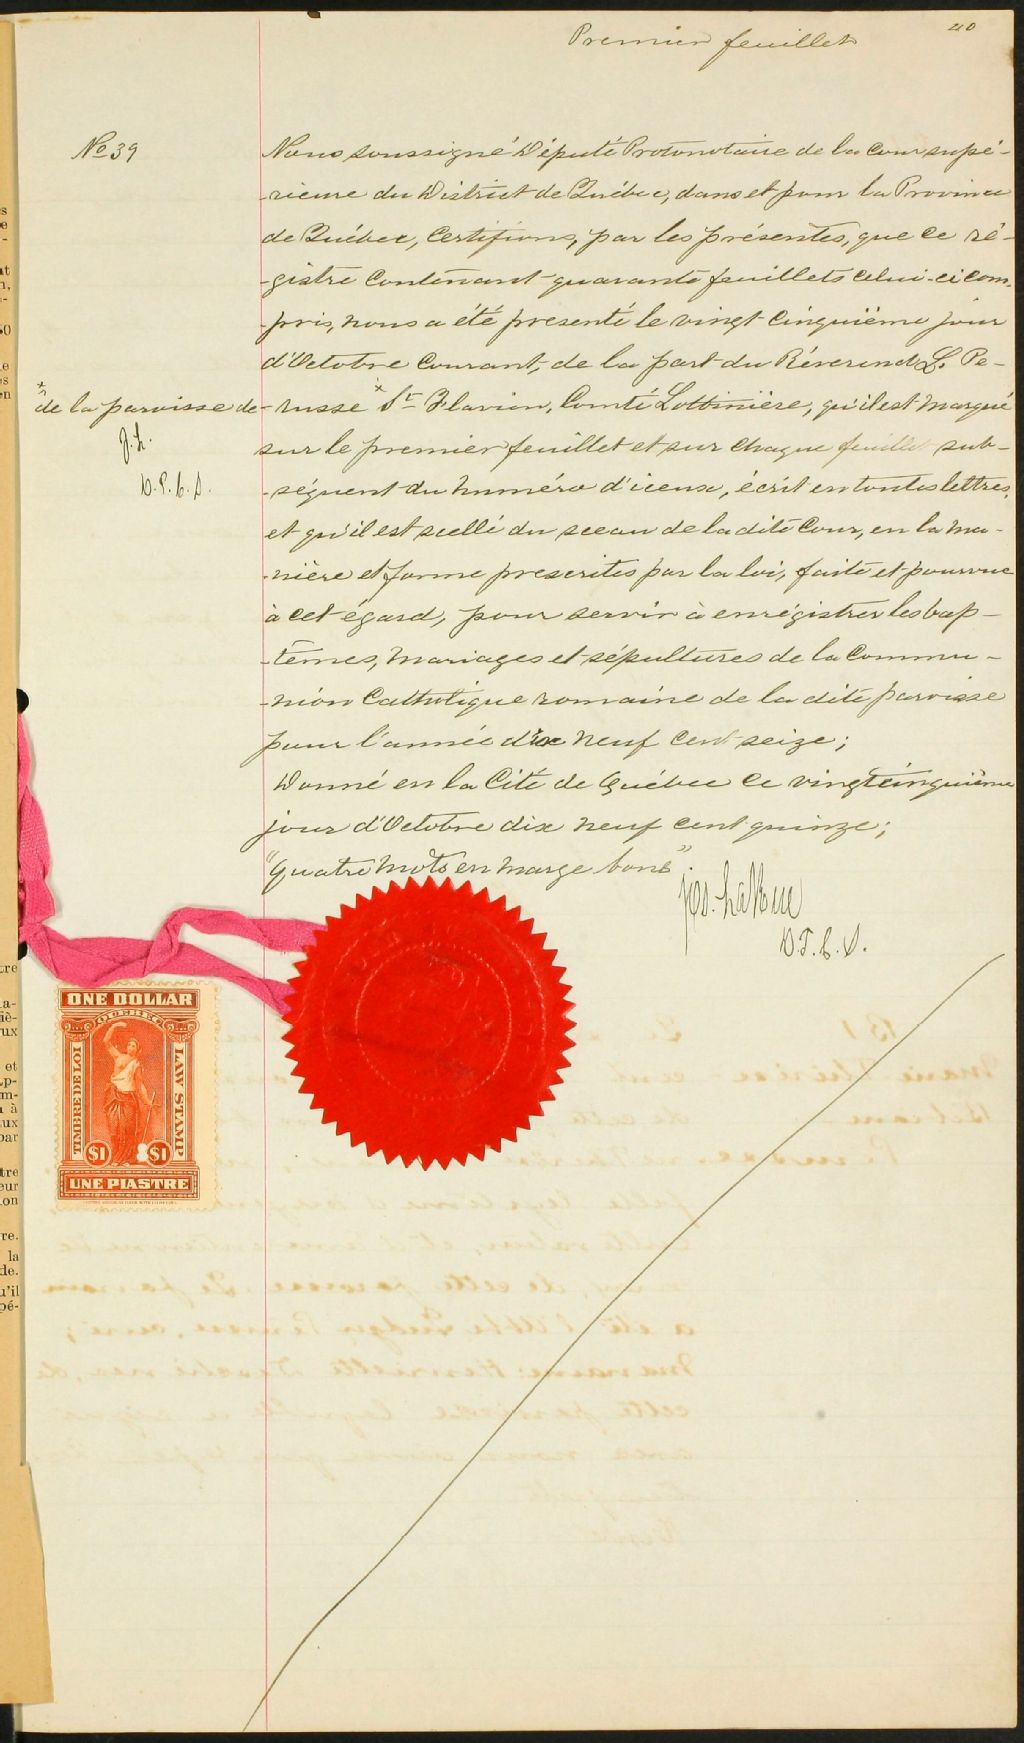 40
Premier feuillet
No 39
Nous soussigné Député Protonotaire de la Cour supé-
-rieure du District de Québec, dans et pour la Province
de Québec, Certifions, par les présentes, que ce ré-
-gistre Contenant quarante feuillets celui-ci com-
-pris, nous a été presenté le vingt cinquième jour
d'Octobre Courant, de la part du Réverend L. Pe-
-russe × St Flavien, Comté Lotbinière, qu'il est marqué
× de la paroisse de
J. L.
D. P. C. S.
sur le premier feuillet et sur chaque feuillet sub-
-séquent du numéro d'iceux, écrit en toutes lettres,
et qu'il est scellé du sceau de la dite Cour, en la ma-
-nière et forme prescrites par la loi, faite et pourvue
à cet égard, pour servir à enrégistrer les bap-
-têmes, mariages et sépultures de la Commu-
-nion Catholique romaine de la dite paroisse
pour l'année dix neuf cent seize;
Donné en la Cité de Québec ce vingt cinquième
jour d'Octobre dix neuf cent quinze;
"Quatre mots en marge bons".
Jos. LaRue
D. P. C. S.
ONE DOLLAR
QUEBEC
TIMBRE DE LOI
LAW STAMP
$1 $1
UNE PIASTRE